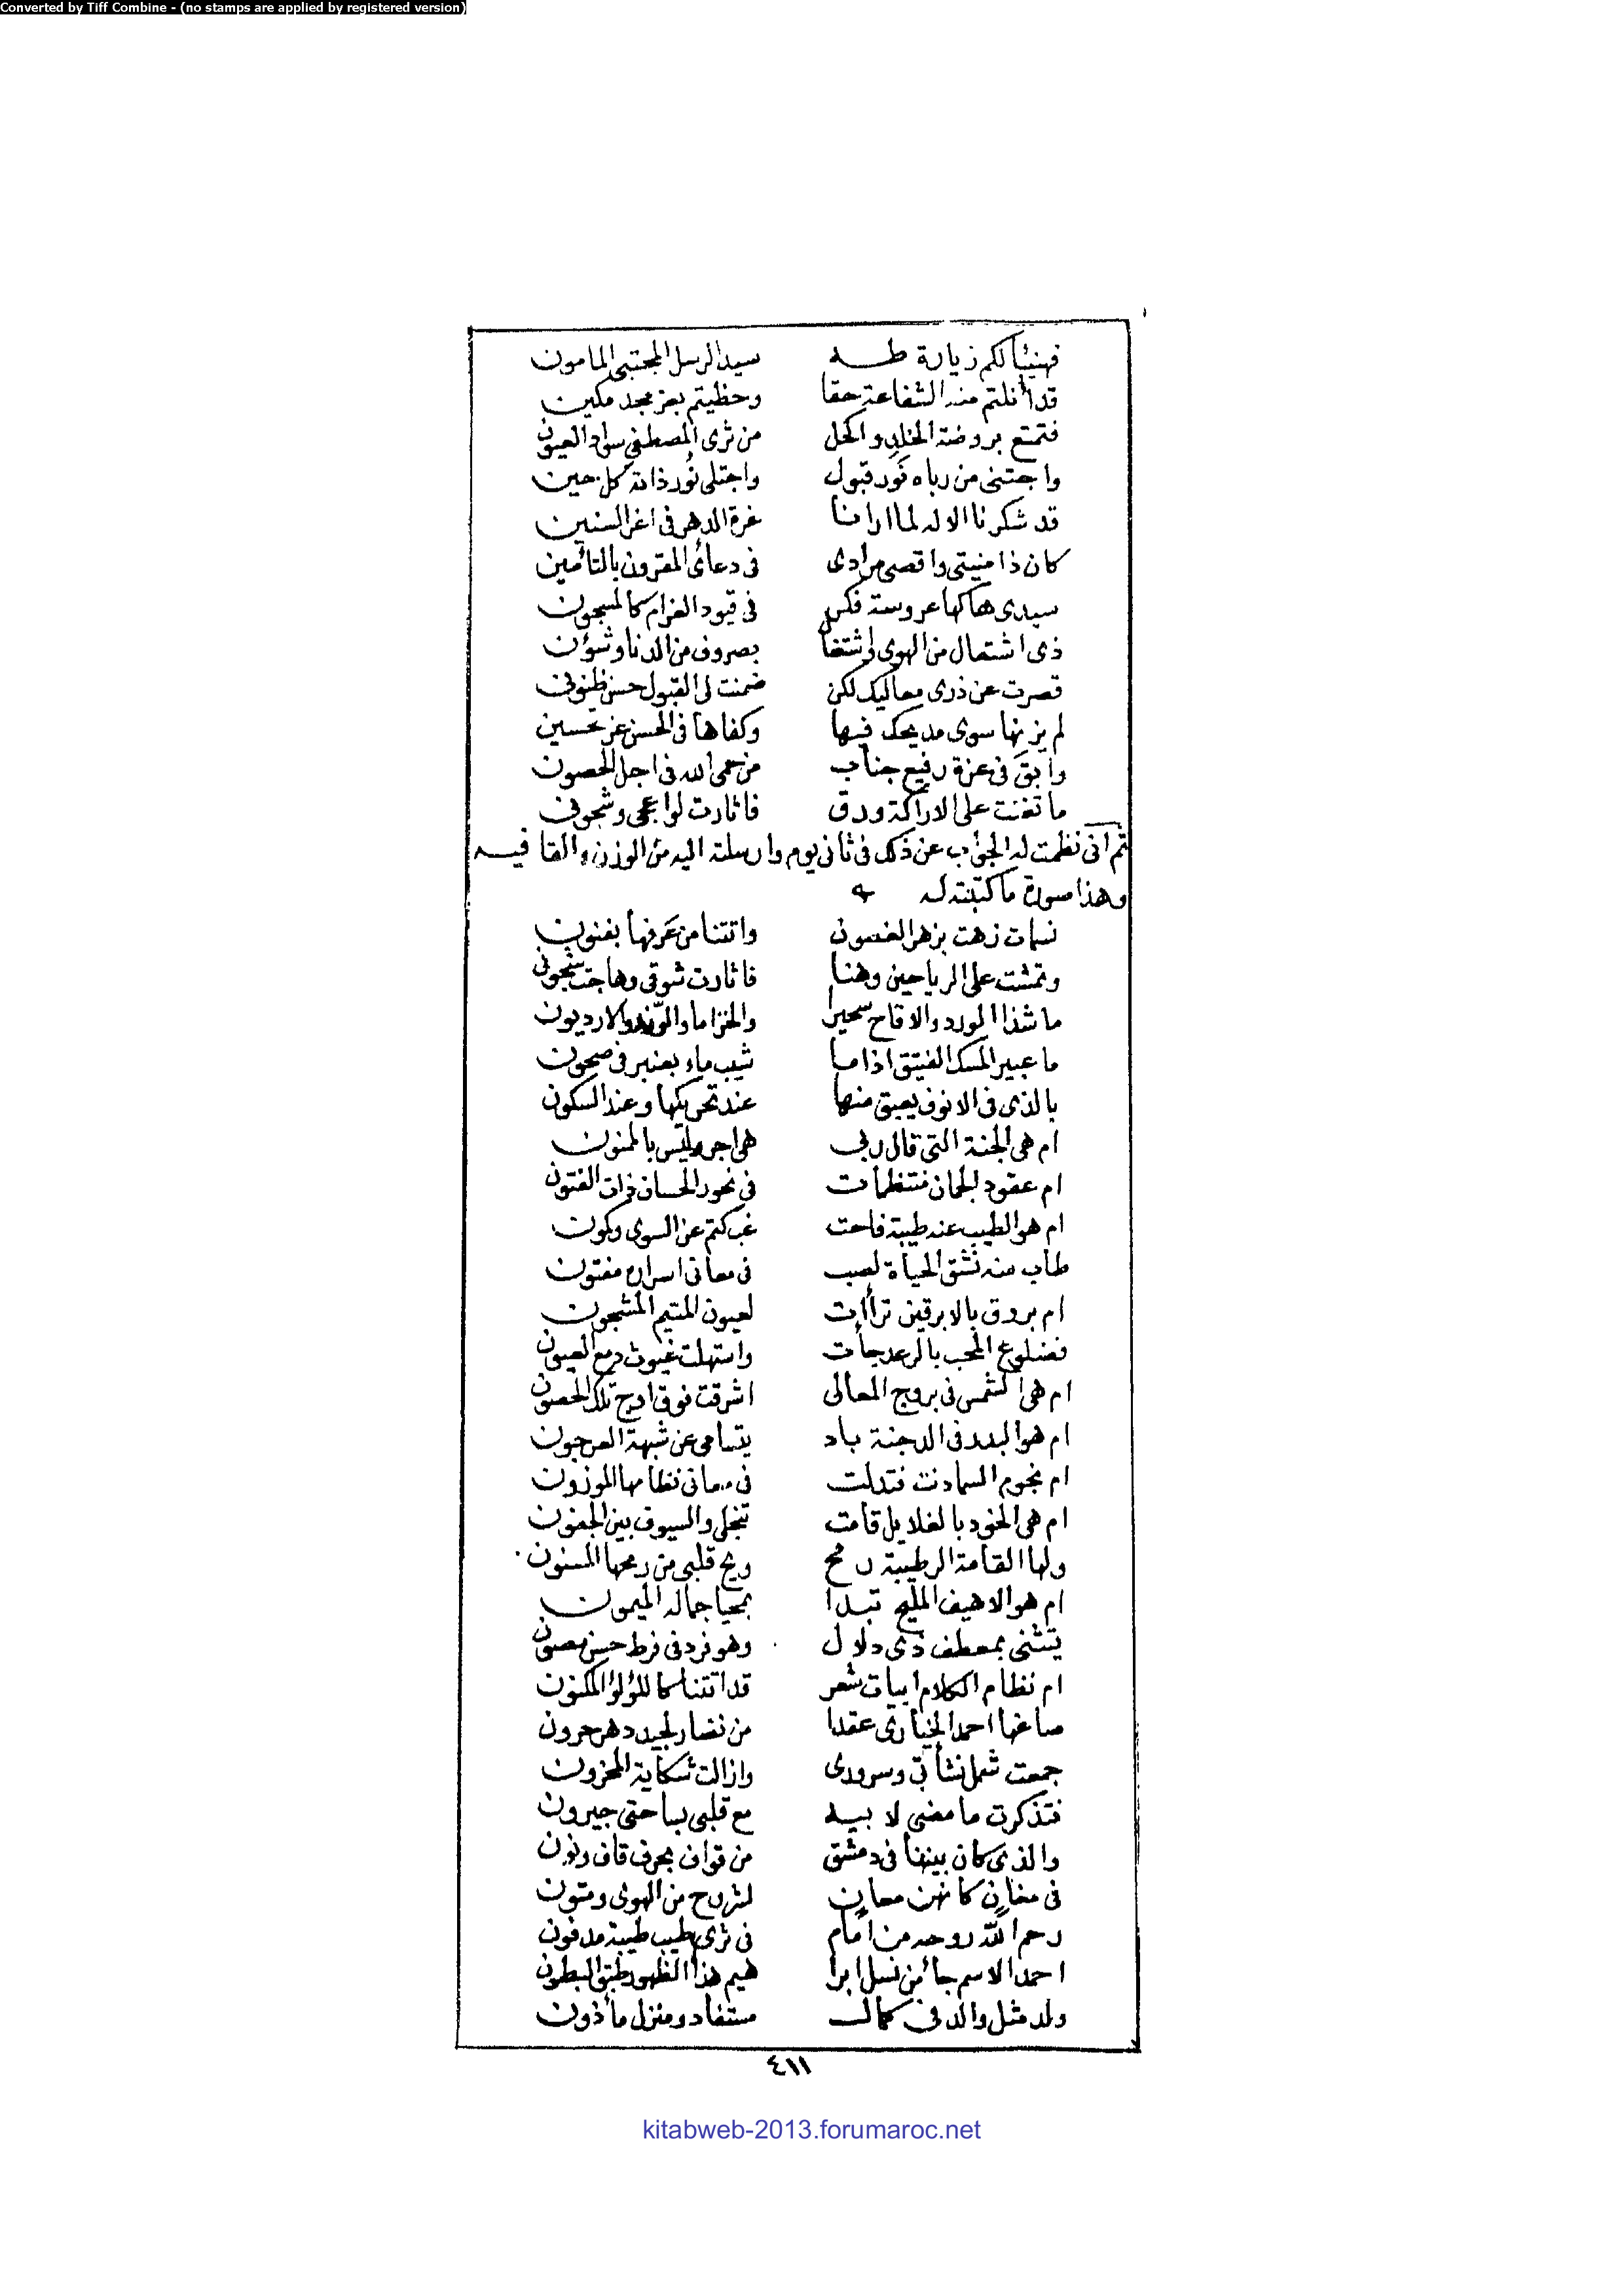 Converted by Tiff Combine - (no stamps are applied by registered version)
فهنيئا لكم زيارة طه سيد الرسل المجتبى المامون
قد أنلتم منه الشفاعة حقا وحظيتم بعز مجد مكين
فتمتع بروضة الخلد والحل من ثرى المصطفى سواد العيون
واجتنى من رباه نَور قبول واجتلى نُور ذاته كل حين
قد شكرنا الاله لما ارانا غرة الدهر فى اغر السنين
كان ذا منيتى واقصى مرادى فى دعائى المقرون بالتأمين
سيدى هاكها عروسة فكر فى قيود الغرام كالمسجون
ذى اشتعال من الهوى واشتغال بصروف من الدنا وشؤن
قصرت عن ذرى معاليك لكن ضمنت لى القبول حسن ظنونى
لم يزنها سوى مديحك فيها وكفاها فى الحسن عن تحسين
وابق فى عزة رفيع جناب من حمى الله فى اجل الحصون
ما تغنت على الاراكة ورق فاثارت لواعجى وشجونى
ثم انى نظمت له الجواب عن ذلك فى ثانى يوم وارسلته اليه من الوزن والقافيه
وهذا صورة ما كتبته له
نسمات زهت بزهر الغصون واتتنا من عَرفها بفنون
وتمشت على الرياحين وهنا فاثارت شوقى وهاجت شجونى
ما شذا الورد والاقاح سحيرا والخزاما والرند والارديون
ما عبير المسك الفتيق اذا ما شيب ماء بعنبر فى صحون
بالذى فى الانوف يعبق منها عند تحريكها وعند السكون
ام هى الجنة التى قال ربى هى اجر وليس بالممنون
ام عقود الجمان منتظمات فى نحور الحسان ذات الفتون
ام هو الطيب عند طيبة فاحت غب كتم عن السوى وكون
طاب منه نشق الحياة لصب فى معانى اسراره مفتون
ام بروق بالابرقين ترأأت لعيون المتيم المشجون
فضلوع المحب بالرعد جأت واستهلت غيوث دمع العيون
ام هى الشمس فى بروج المعالى اشرقت فوق اوج تلك الحصون
ام هو البدر فى الدجنة باد يتسامى عن شبهة العرجون
ام نجوم السما دنت فتدلت فى معانى نظامها الموزون
ام هى الخود بالغلايل قامت تنجلى والسيوف بين الجفون
ولها القامة الرطيبة رمح ويح قلبى من رمحها المسنون
ام هو الاهيف المليح تبدا بمحيا جماله الميمون
يتثنى بمعطف ذى دلال وهو فرد فى فرط حسن مصون
ام نظام الكلام ابيات شعر قد اتتنا كاللؤلؤ المكنون
صاغها احمد الخيارى عقدا من نضار لجيد دهر حرون
جمعت شمل نشأتى وسرورى وازالت شكاية المحزون
فتذكرت ما مضى لابيه مع قلبى بساحتى جيرون
والذى كان بيننا فى دمشق من قواف بحرف قاف ونون
فى مغان كانهن معان لشروح من الهوى ومتون
رحم الله روحه من امام فى ثرى طيب طيبة مدفون
احمد الاسم جأ من نسل ابرا هيم هذا الظهور طبق البطون
ولد مثل والد فى كمال مستفاد ومنزل مأذون
٤١١
kitabweb-2013.forumaroc.net